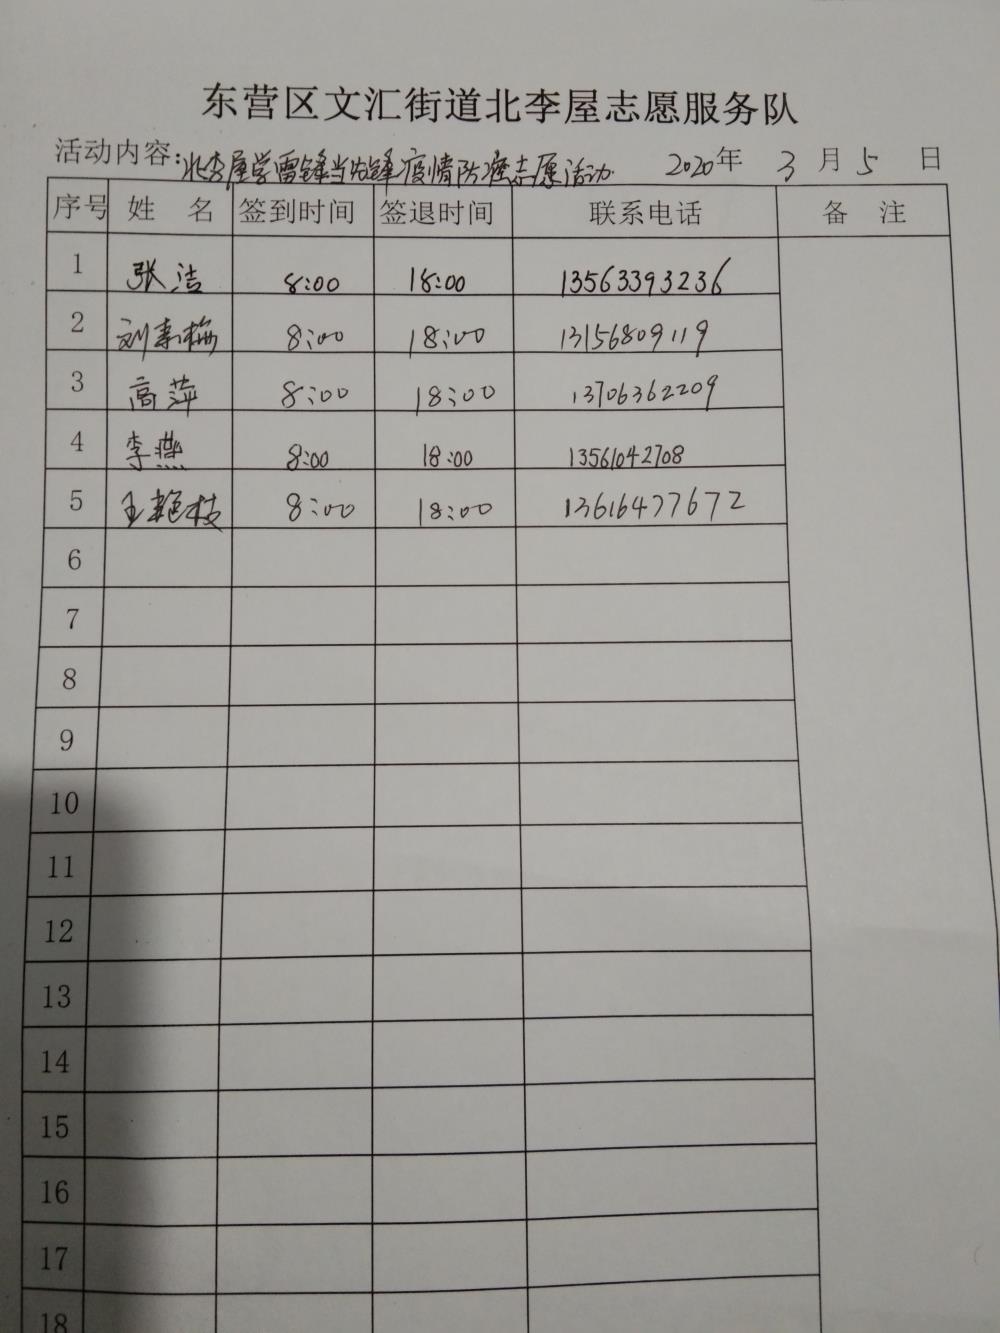 东营区文汇街道北李屋志愿服务队
活动内容:北李屋学雷锋当先锋疫情防控志愿活动 2020年 3 月 5 日
序号 姓 名 签到时间 签退时间 联系电话 备 注
1 张洁 8:00 18:00 13563393236
2 刘素梅 8:00 18:00 13156809119
3 高萍 8:00 18:00 13706362209
4 李燕 8:00 18:00 13561042708
5 王艳枝 8:00 18:00 13616477672
6
7
8
9
10
11
12
13
14
15
16
17
18